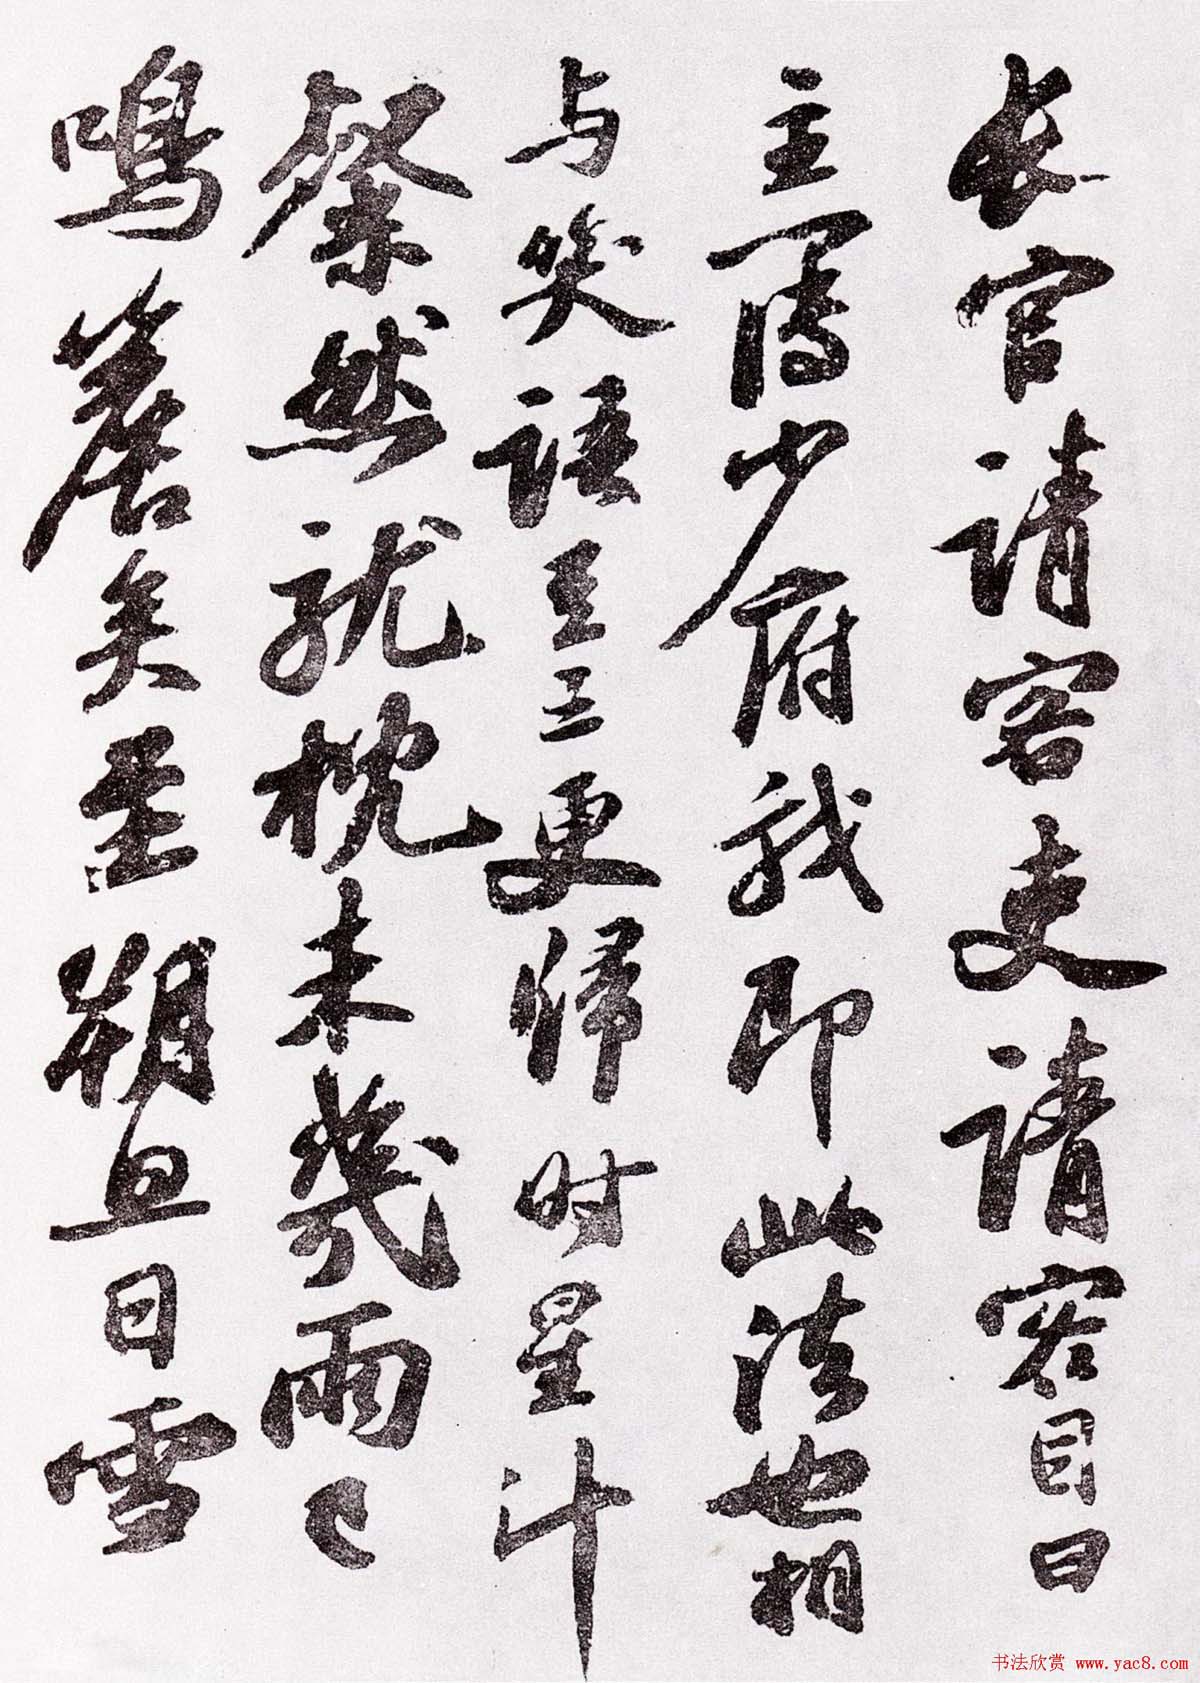 長官請客吏請客目曰
主簿少府我即此法也相
与笑語至三更歸时星斗
粲然就枕未幾雨已
鳴簷矣至朔旦日雪
书法欣赏 www.yac8.com